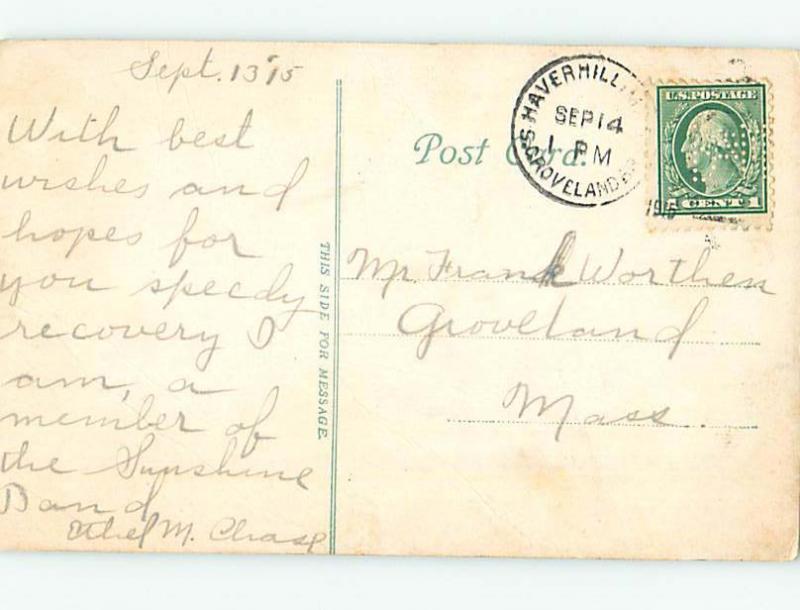 Sept. 13 '15
With best
wishes and
hopes for
you speedy
recovery I
am, a
member of
the Sunshine
Band
Ethel M. Chase
THIS SIDE FOR MESSAGE.
Post Card.
HAVERHILL
SEP 14
1 PM
GROVELAND
191
U.S. POSTAGE
1 CENT 1
Mr. Frank Worthen
Groveland
Mass.